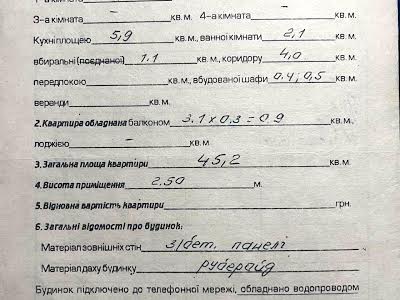 3-а кімната – кв. м. 4-а кімната – кв. м.
Кухні площею 5,9 кв. м., ванної кімнати 2,1 кв. м.
вбиральні (поєднаної) 1.1 кв. м., коридору 4,0 кв. м.
передпокою кв. м., вбудованої шафи 0.4; 0,5 кв. м.
веранди кв. м.
2. Квартира обладнана балконом 3.1 х 0.3 = 0.9 кв. м.,
лоджією – кв. м.
3. Загальна площа квартири 45,2 кв. м.
4. Висота приміщення 2.50 м.
5. Відновна вартість квартири грн.
6. Загальні відомості про будинок:
Матеріал зовнішніх стін з/бет. панелі
Матеріал даху будинку руберайд
Будинок підключено до телефонної мережі, обладнано водопроводом